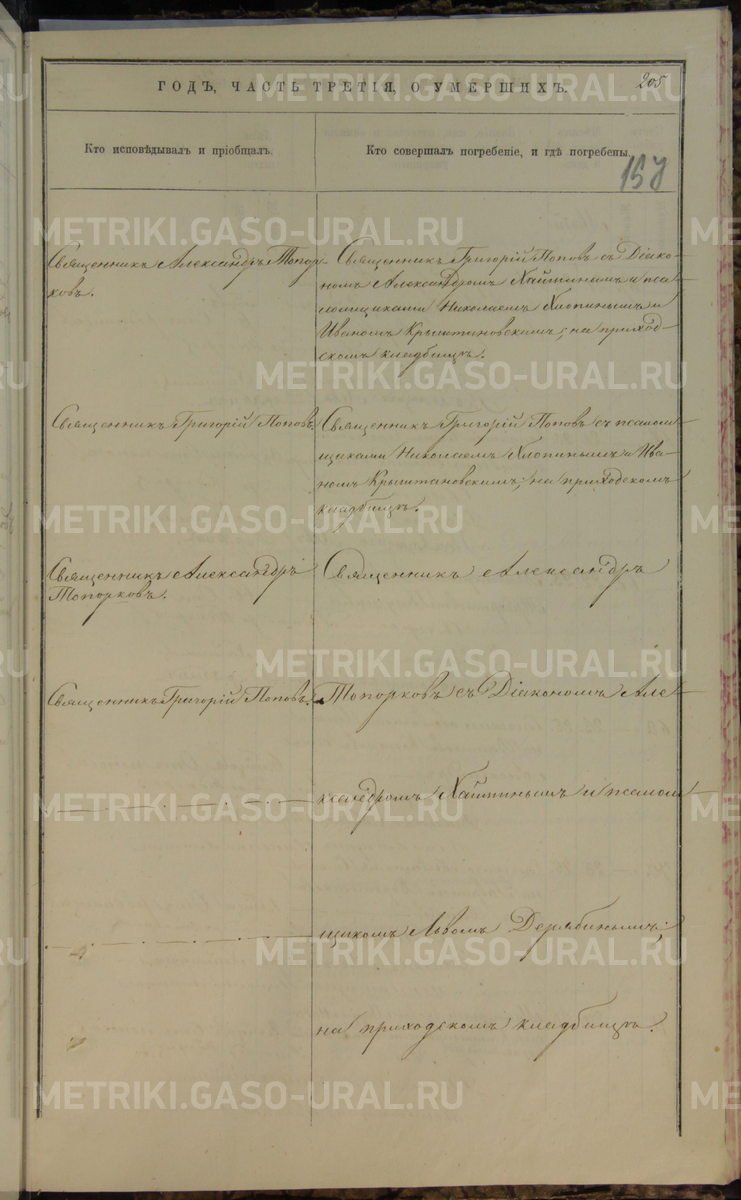 205
ГОДЪ, ЧАСТЬ ТРЕТІЯ, О УМЕРШИХЪ.
Кто исповѣдывалъ и пріобщалъ.
Кто совершалъ погребеніе, и гдѣ погребены.
157
Священникъ Александръ Топор-
ковъ.
Священникъ Григорій Поповъ съ Діако-
номъ Александромъ Хайминымъ и пса-
ломщиками Николаемъ Хлопинымъ и
Иваномъ Крыштановскимъ; на приход-
скомъ кладбищѣ.
Священникъ Григорій Поповъ.
Священникъ Григорій Поповъ съ псалом-
щиками Николаемъ Хлопинымъ и Ива-
номъ Крыштановскимъ; на приходскомъ
кладбищѣ.
Священникъ Александръ
Топорковъ.
Священникъ Александръ
Священникъ Григорій Поповъ.
Топорковъ съ Діакономъ Але-
ксандромъ Хайминымъ и псалом-
щикомъ Львомъ Дерябинымъ;
на приходскомъ кладбищѣ.
METRIKI.GASO-URAL.RU